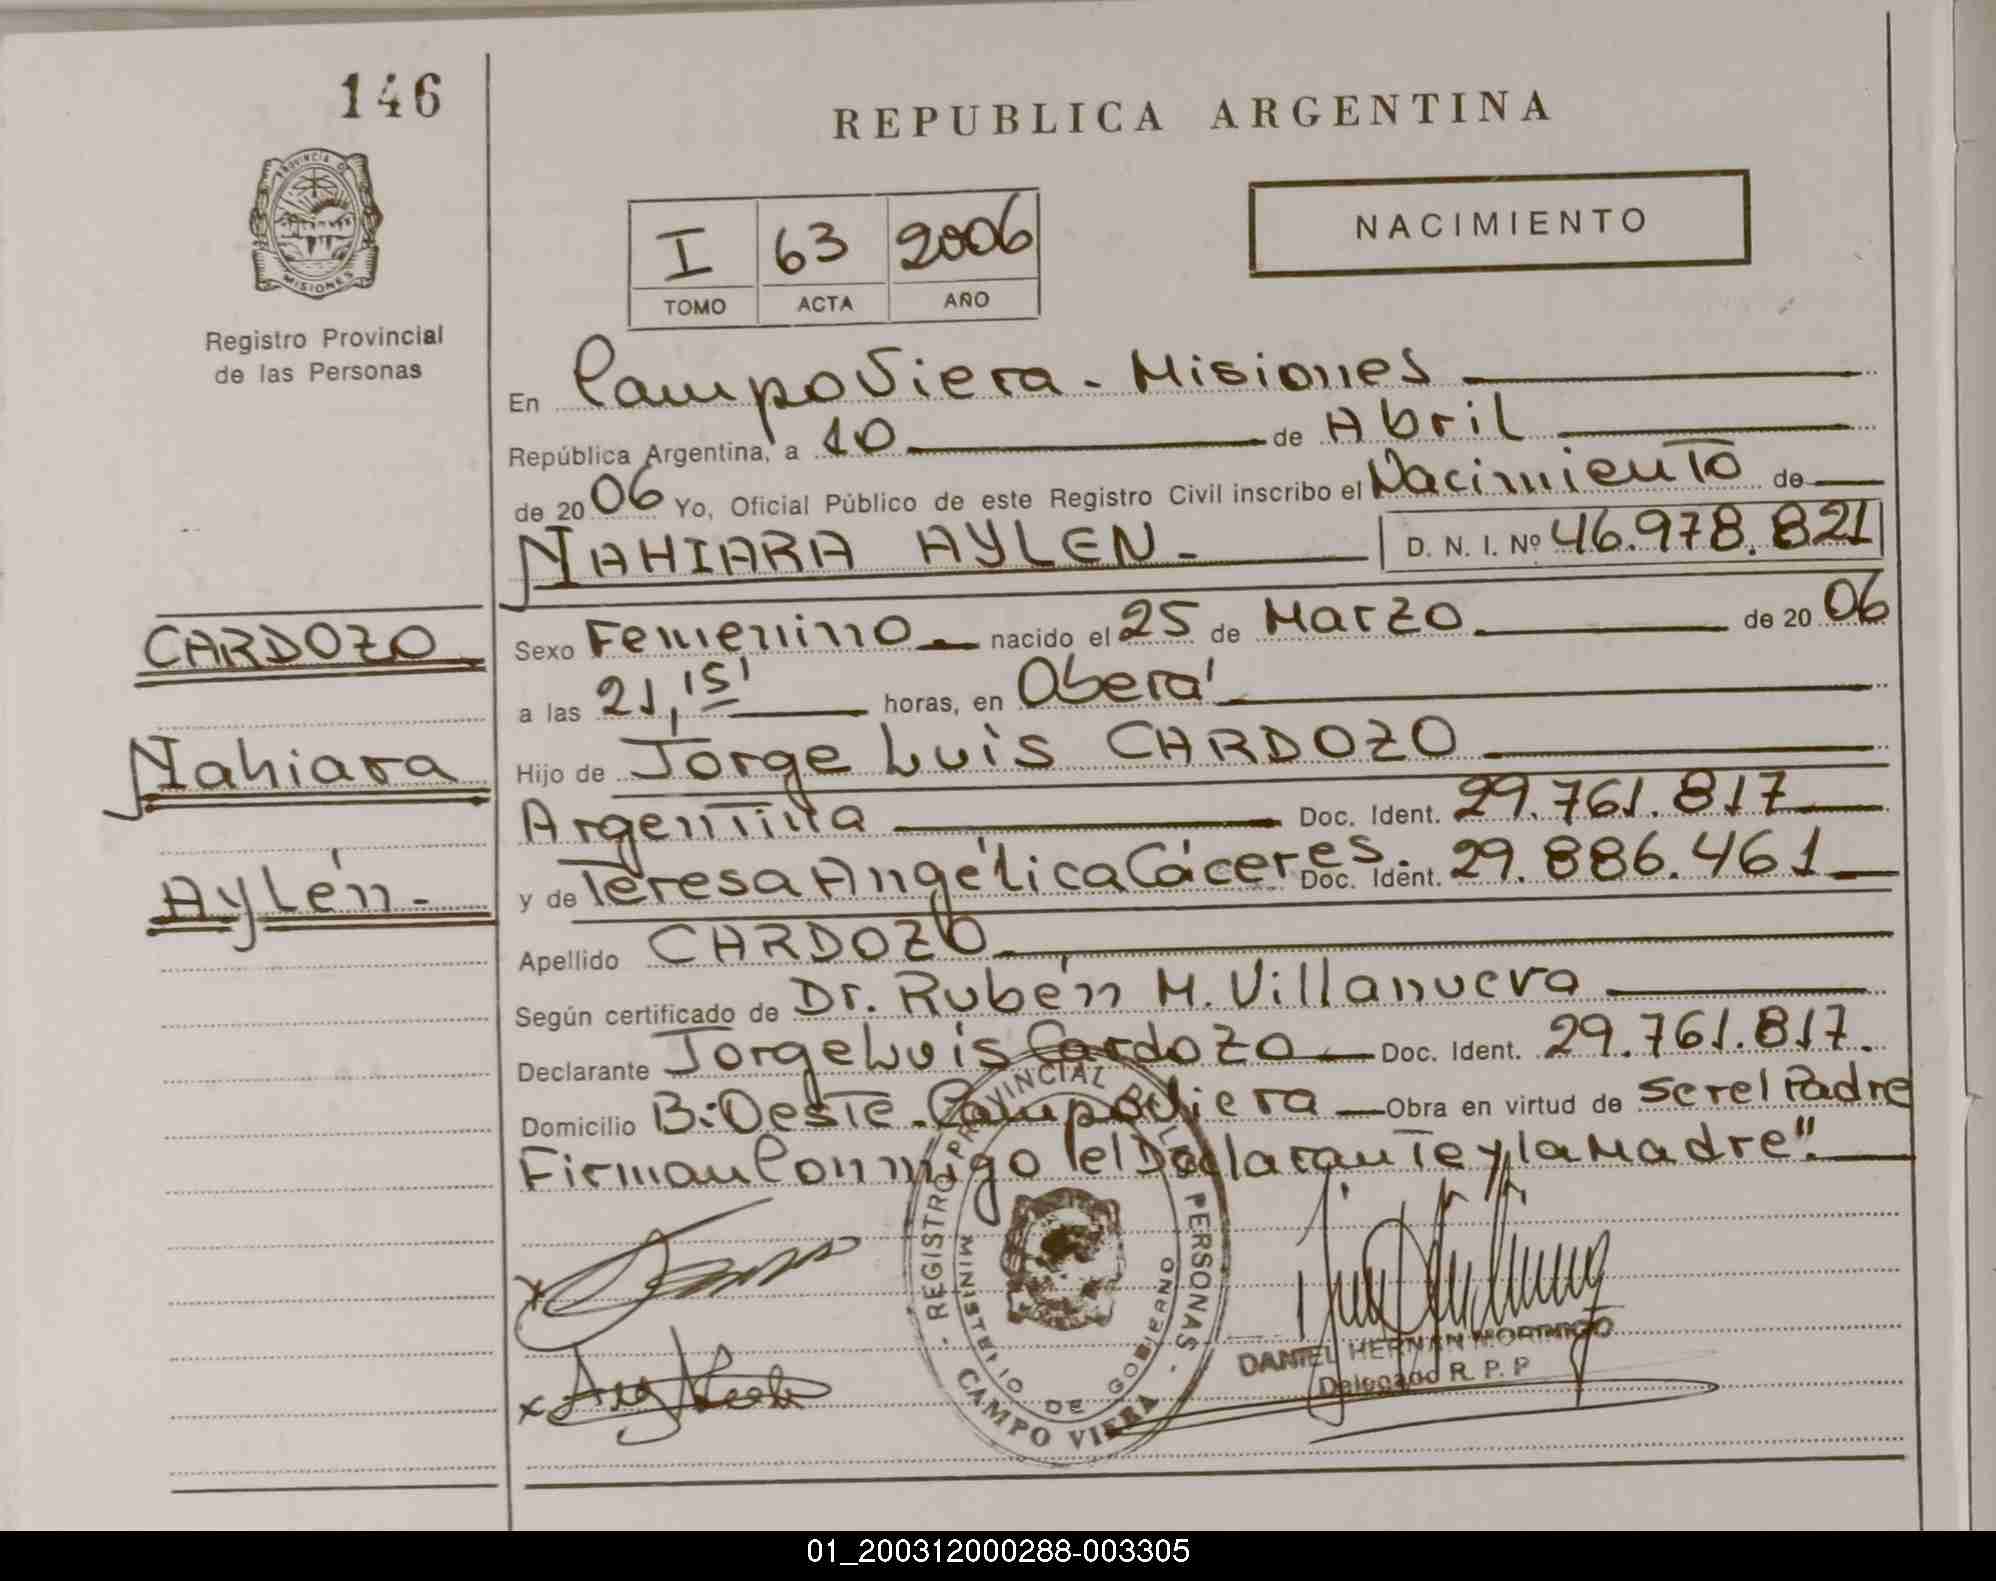 146
REPUBLICA ARGENTINA
PROVINCIA DE
MISIONES
Registro Provincial
de las Personas
I 63 2006
TOMO ACTA AÑO
NACIMIENTO
En Campo Viera - Misiones
República Argentina, a 10 de Abril
de 20 06 Yo, Oficial Público de este Registro Civil inscribo el Nacimiento de
NAHIARA AYLEN - D. N. I. Nº 46.978.821
CARDOZO
Nahiara
Aylén -
Sexo Femenino nacido el 25 de Marzo de 20 06
a las 21,15' horas, en Oberá
Hijo de Jorge Luis CARDOZO
Argentina Doc. Ident. 29.761.817
y de Teresa Angélica Cáceres. Doc. Ident. 29.886.461
Apellido CARDOZO
Según certificado de Dr. Rubén M. Villanueva
Declarante Jorge Luis Cardozo Doc. Ident. 29.761.817.
Domicilio B: Oeste - Campo Viera Obra en virtud de ser el Padre
Firman Conmigo "el Declarante y la Madre".
REGISTRO PROVINCIAL DE LAS PERSONAS
MINISTERIO DE GOBIERNO
CAMPO VIERA
x
x
DANIEL HERNAN MORINIGO
Delegado R. P. P
01_200312000288-003305